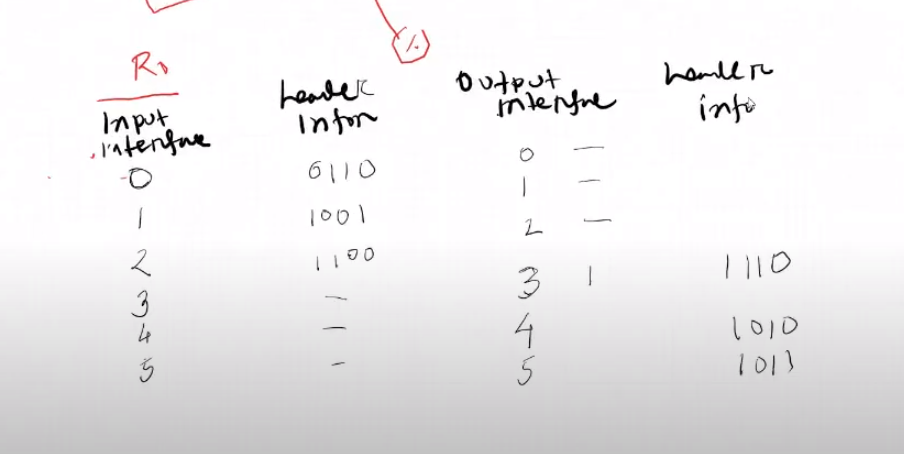 R1
Input interface	header infon	Output interface	header info
0	0110	0	—
1	1001	1	—
2	1100	2	—
3	—	3	1	1110
4	—	4	1010
5	-	5	1011